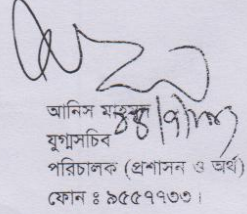 আনিস মাহমুদ
যুগ্মসচিব
পরিচালক (প্রশাসন ও অর্থ)
ফোন ঃ ৯৫৫৭৭৩৩।